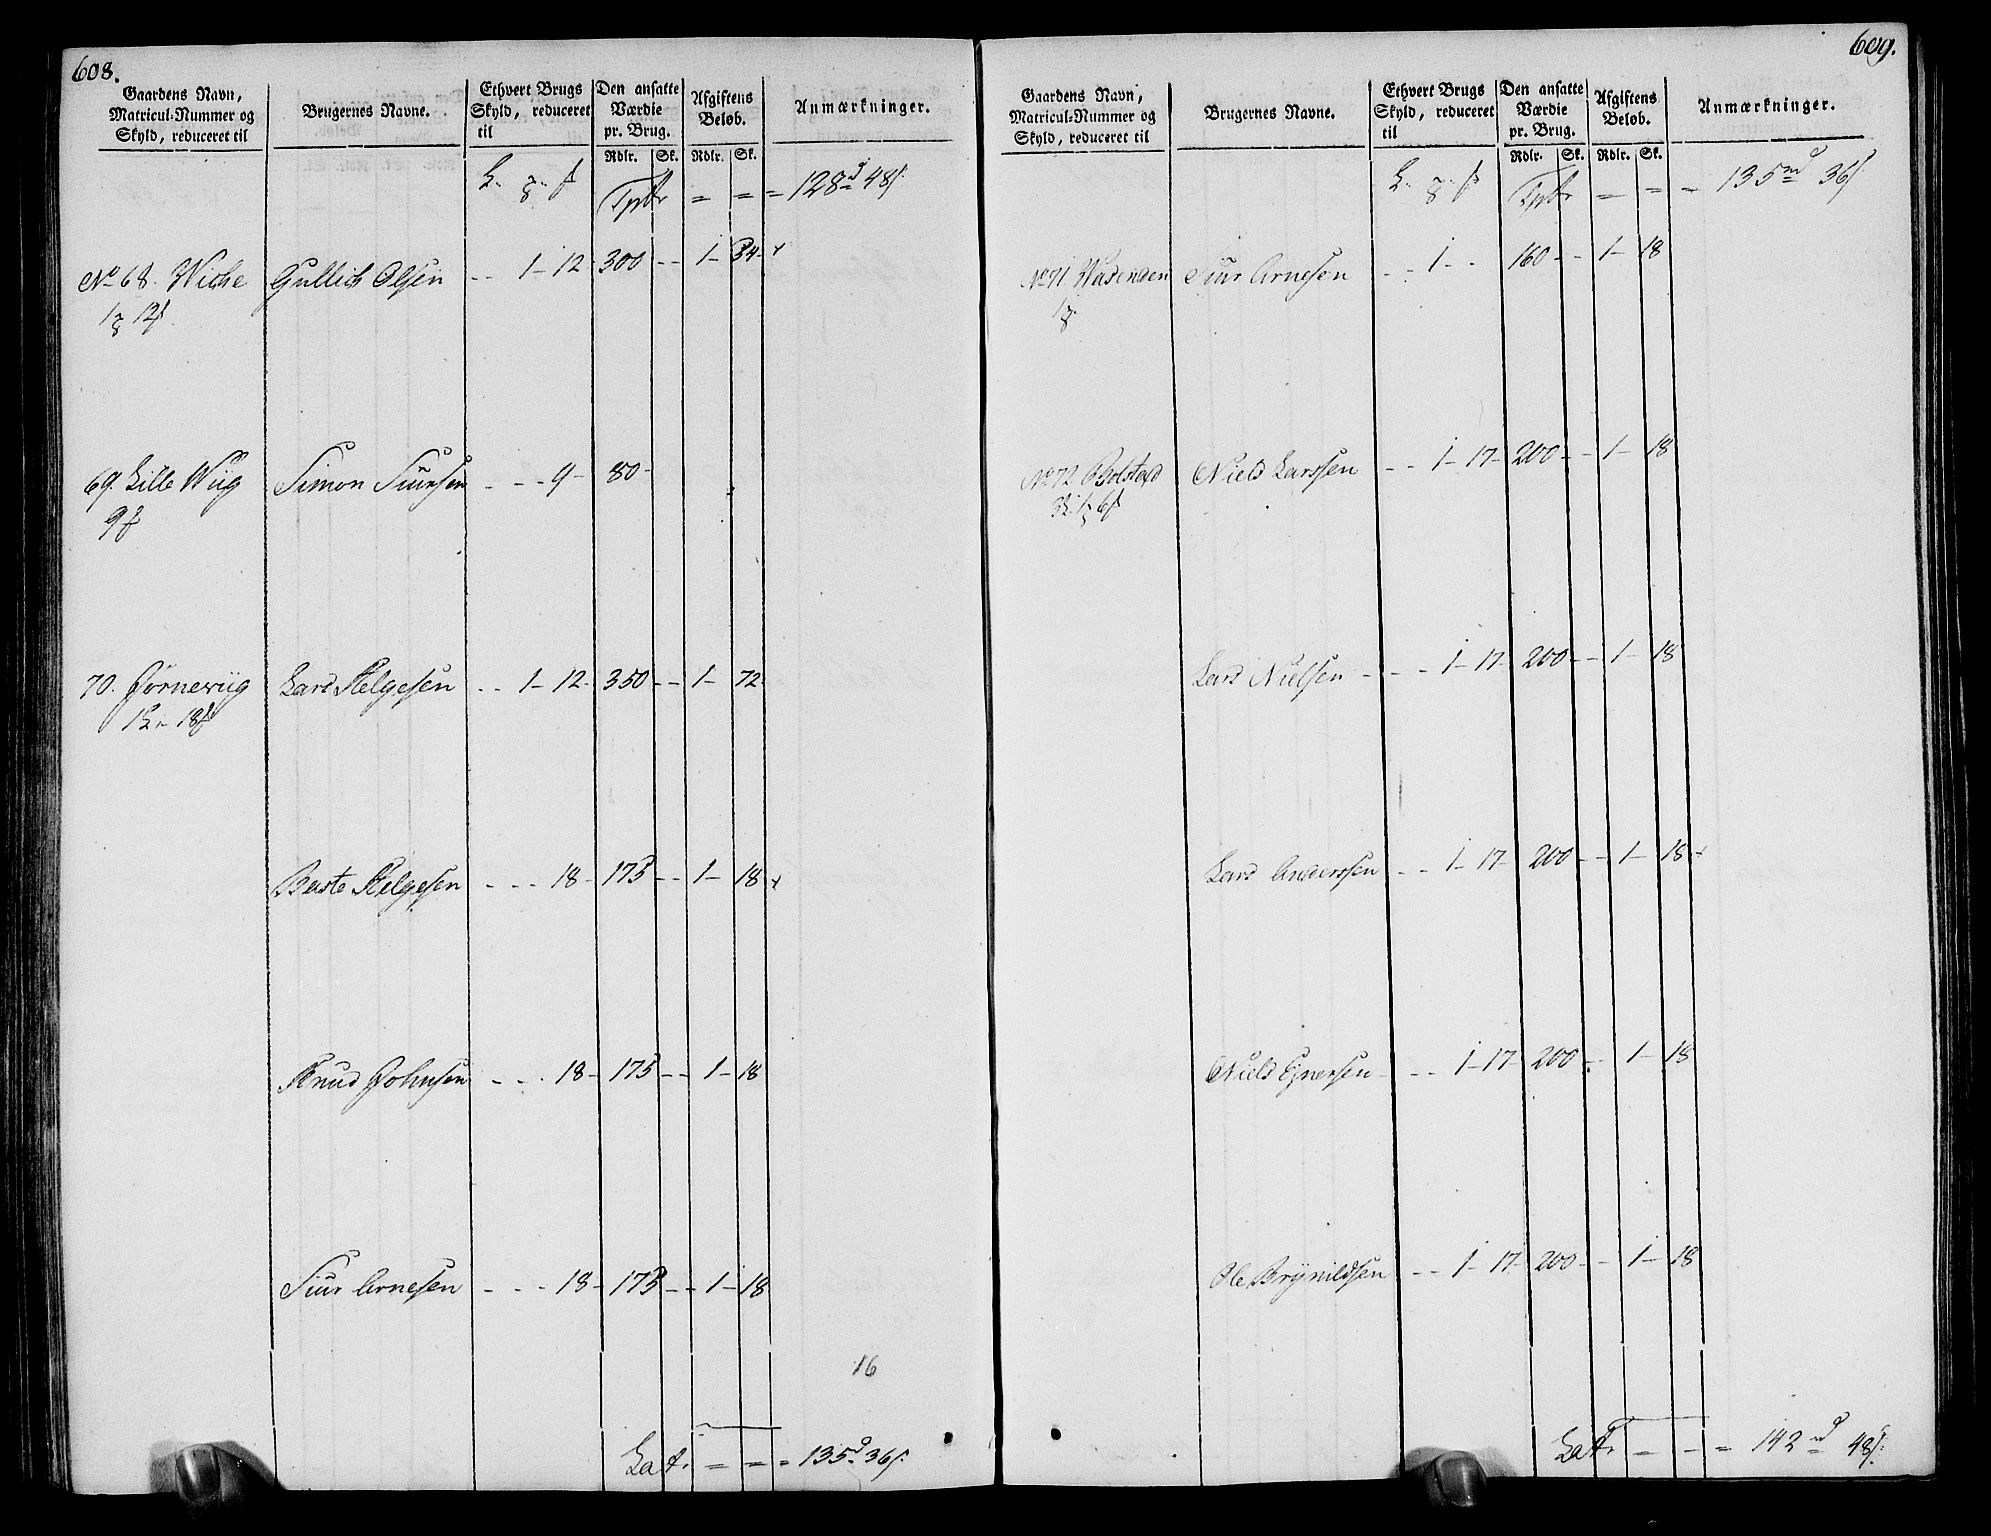 608.
Gaardens Navn, Matricul-Nummer og Skyld, reduceret til
Brugernes Navne.
Ethvert Brugs Skyld, reduceret til
Den ansatte Værdie pr. Brug.
Afgiftens Beløb.
Anmærkninger.
Rdlr. Sk. Rdlr. Sk.
Tptr = = = 128 d 48 s.
No 68. Wiche Gullich Olsen - - 1 - 12 300 - - 1 - 34 -
69. Lille Wiig Simon Siursen - - - 9 - 80 -
70. Jørnewiig Lars Helgesen - - 1 - 12 - 350 - - 1 - 72
1 L - 18
Helgesen - - - 18 - 175 - - 1 - 18
Knud Johnsen - - - 18 - 175 - - 1 - 18
Siur Arnesen - - - 18 - 175 - - 1 - 18
16
Lat. = = = 135 d 36 s.
609.
Gaardens Navn, Matricul-Nummer og Skyld, reduceret til
Brugernes Navne.
Ethvert Brugs Skyld, reduceret til
Den ansatte Værdie pr. Brug.
Afgiftens Beløb.
Anmærkninger.
Rdlr. Sk. Rdlr. Sk.
Tptr = = = 135 d 36 s.
No 71 Siur Arnesen - - 1 - - 160 - - 1 - 18
No 72 Bolstad Niels Larssen - - 1 - 17 - 200 - - 1 - 18
Lars Nielsen - - - 1 - 17 - 200 - - 1 - 18
Lars Anderssen - - 1 - 17 - 200 - - 1 - 18
Niels Ejnersen - - - 1 - 17 - 200 - - 1 - 18
Ole Brynildsen - - 1 - 17 - 200 - - 1 - 18
Lat. = = = 142 d 48 s.